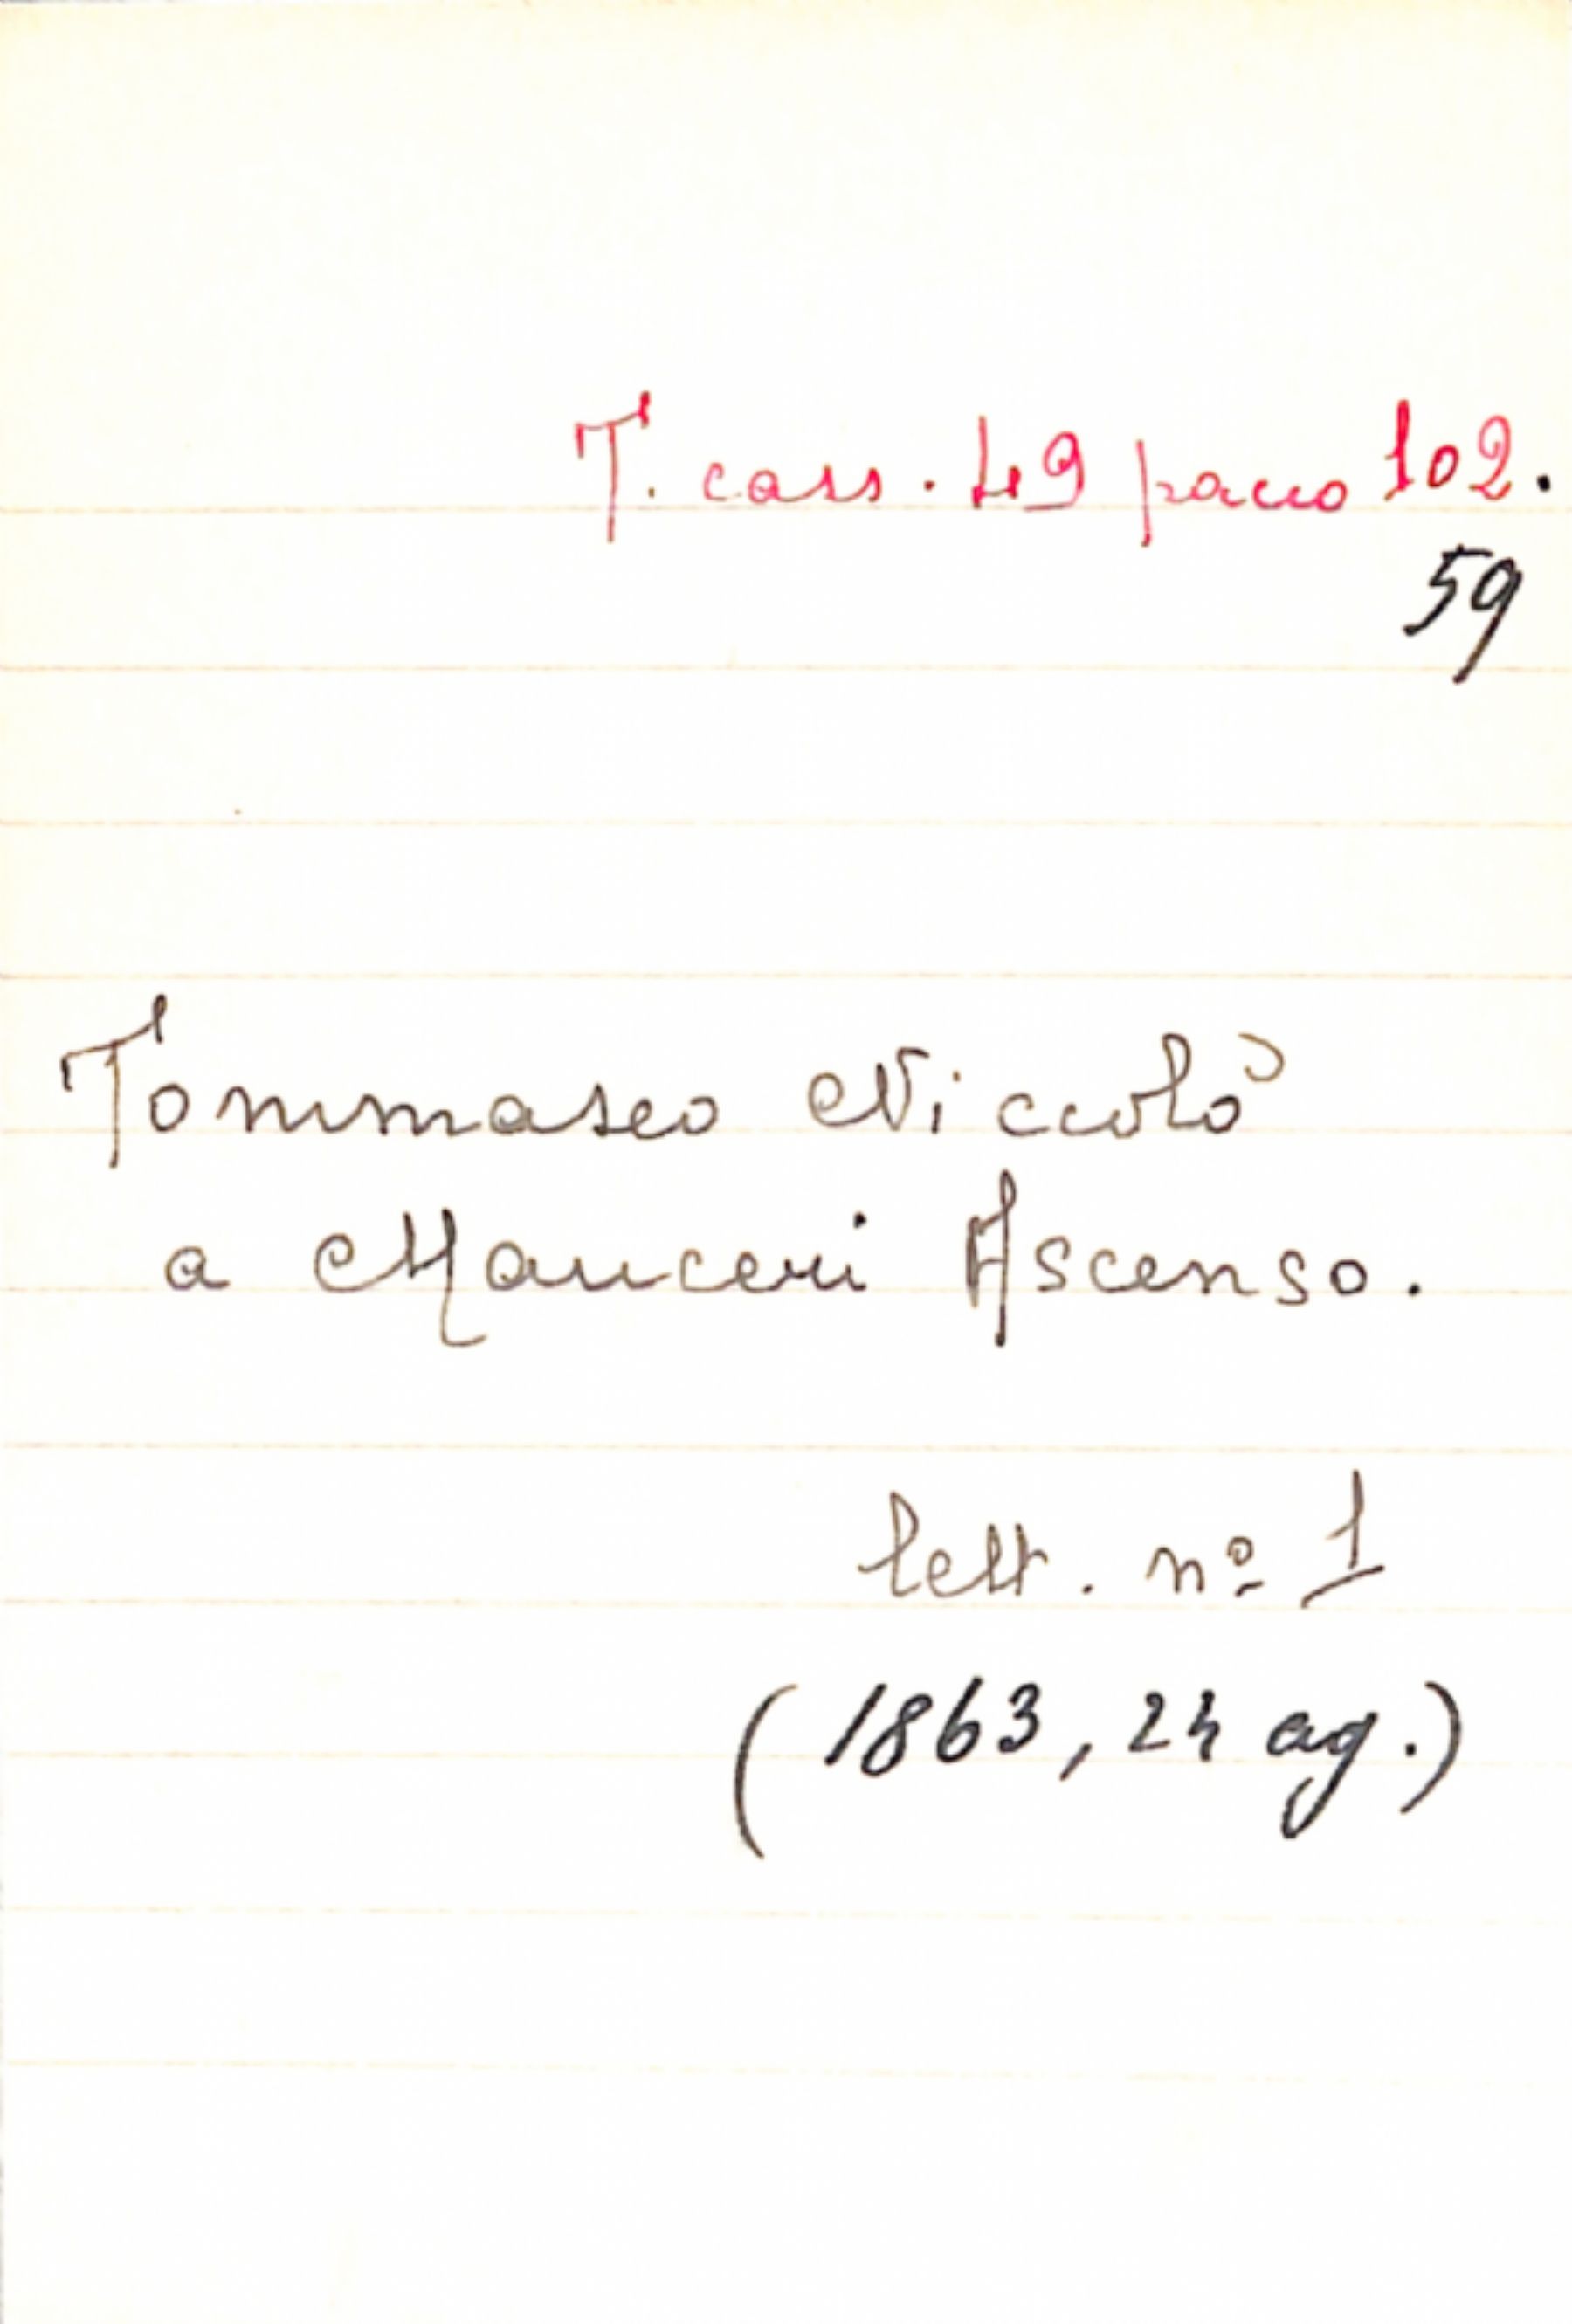 T. cass. 49 pacco 102.
59
Tommaseo Niccolò
a Mauceri Ascenso.
lett. nº 1
(1863, 24 ag.)